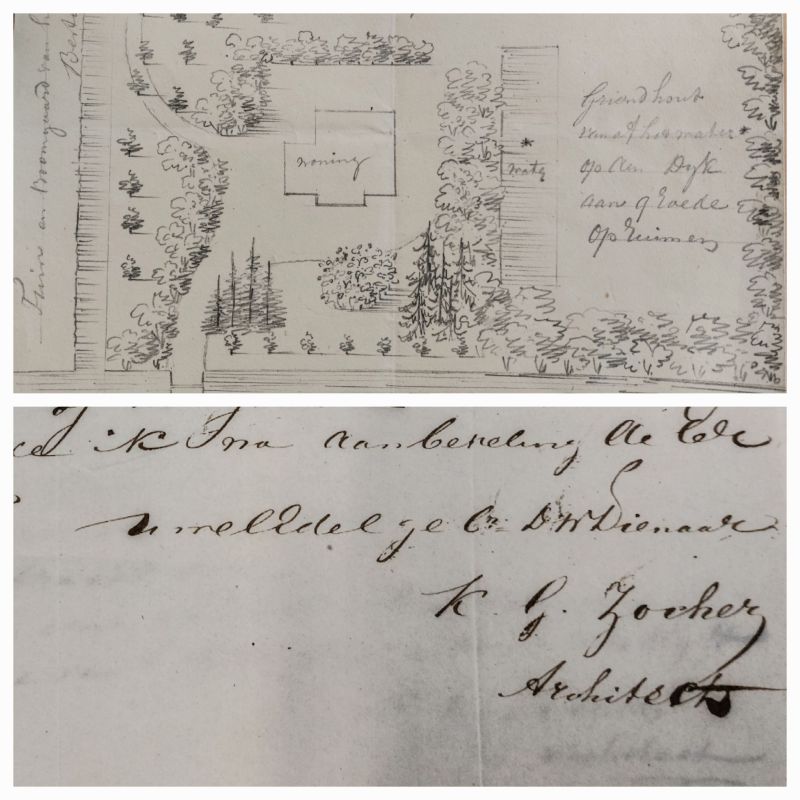 Tuin en Boomgaard van
woning
water
Griendhout
vanaf het water *
op den Dyk
aan q Roede
op Ruimen
ik Na aanbeveling de Eer
uwelEdel geb DWDienaar
K. G. Zocher
Architect